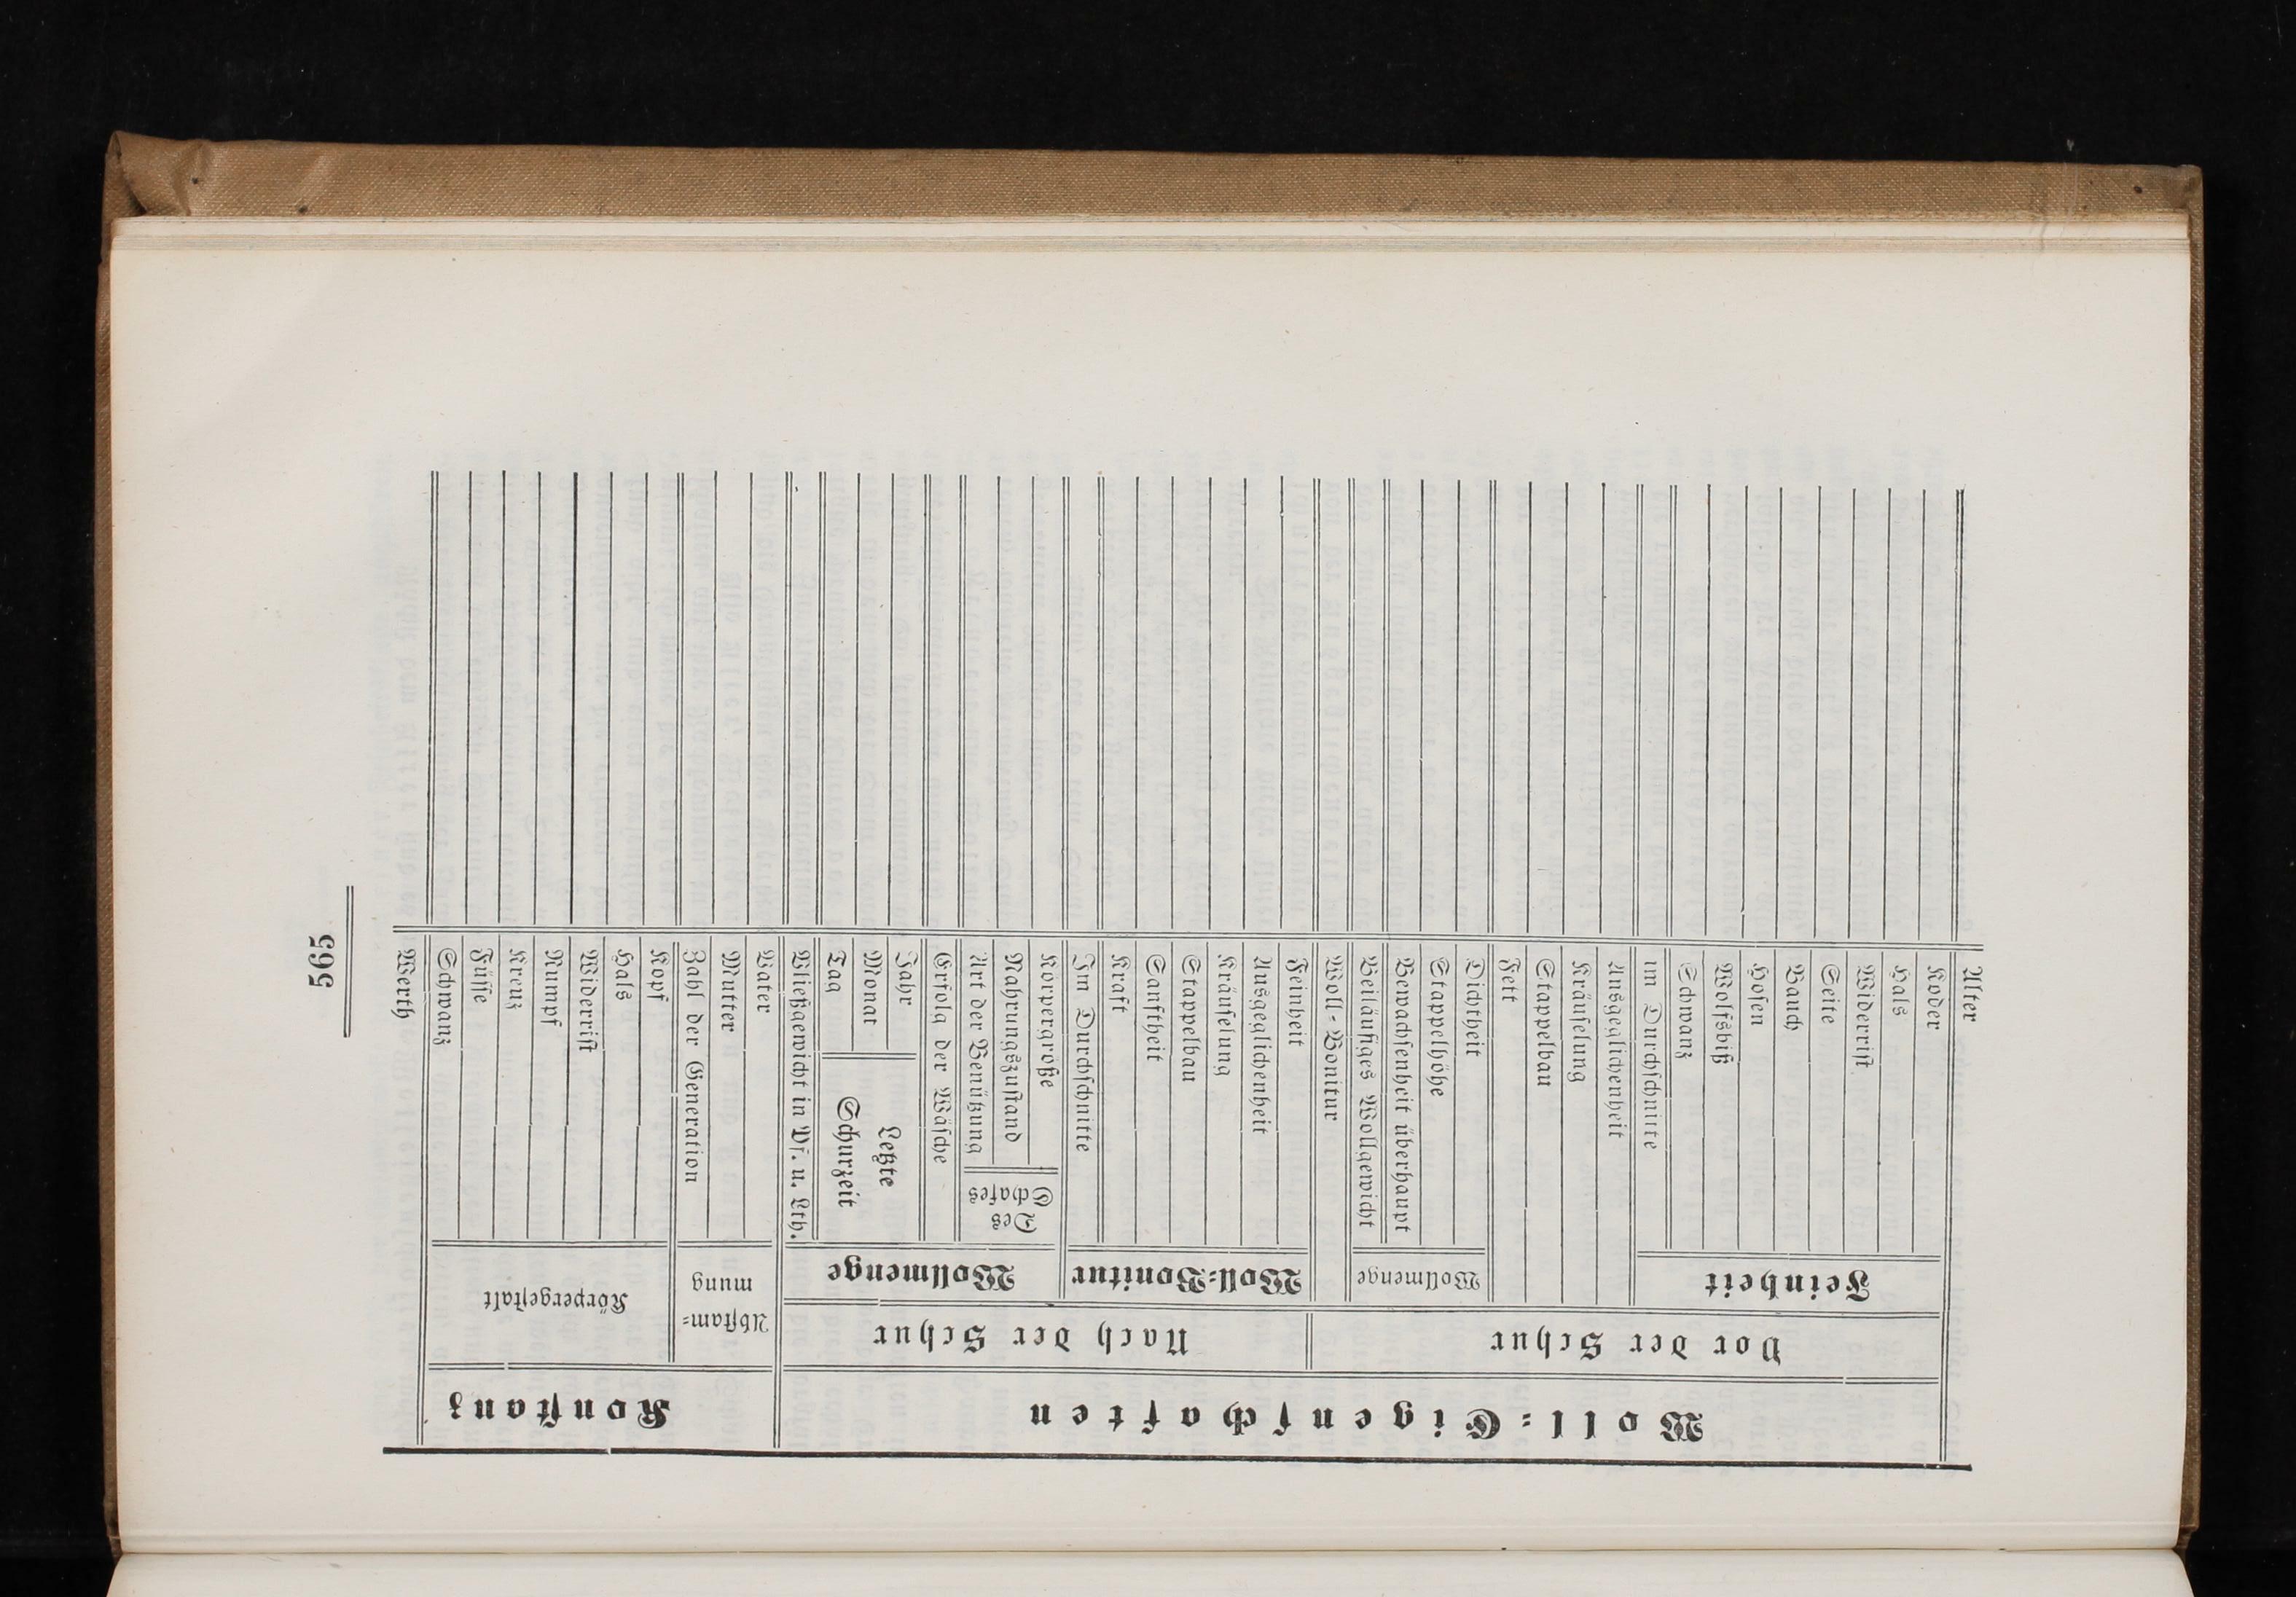 565
Woll-Eigenschaften
Konstanz
Vor der Schur
Nach der Schur
Abstam-
mung
Körpergestalt
Feinheit
Wollmenge
Woll-Bonitur
Wollmenge
Des
Schafes
Letzte
Schurzeit
Alter
Koder
Hals
Widerrist
Seite
Bauch
Hosen
Wolfsbiß
Schwanz
im Durchschnitte
Ausgeglichenheit
Kräuselung
Stappelbau
Fett
Dichtheit
Stappelhöhe
Bewachsenheit überhaupt
Beiläufiges Wollgewicht
Woll-Bonitur
Feinheit
Ausgeglichenheit
Kräuselung
Stappelbau
Sanftheit
Kraft
Im Durchschnitte
Körpergröße
Nahrungszustand
Art der Benützung
Erfolg der Wäsche
Jahr
Monat
Tag
Vließgewicht in Pf. u. Lth.
Vater
Mutter
Zahl der Generation
Kopf
Hals
Widerrist
Rumpf
Kreuz
Füsse
Schwanz
Werth